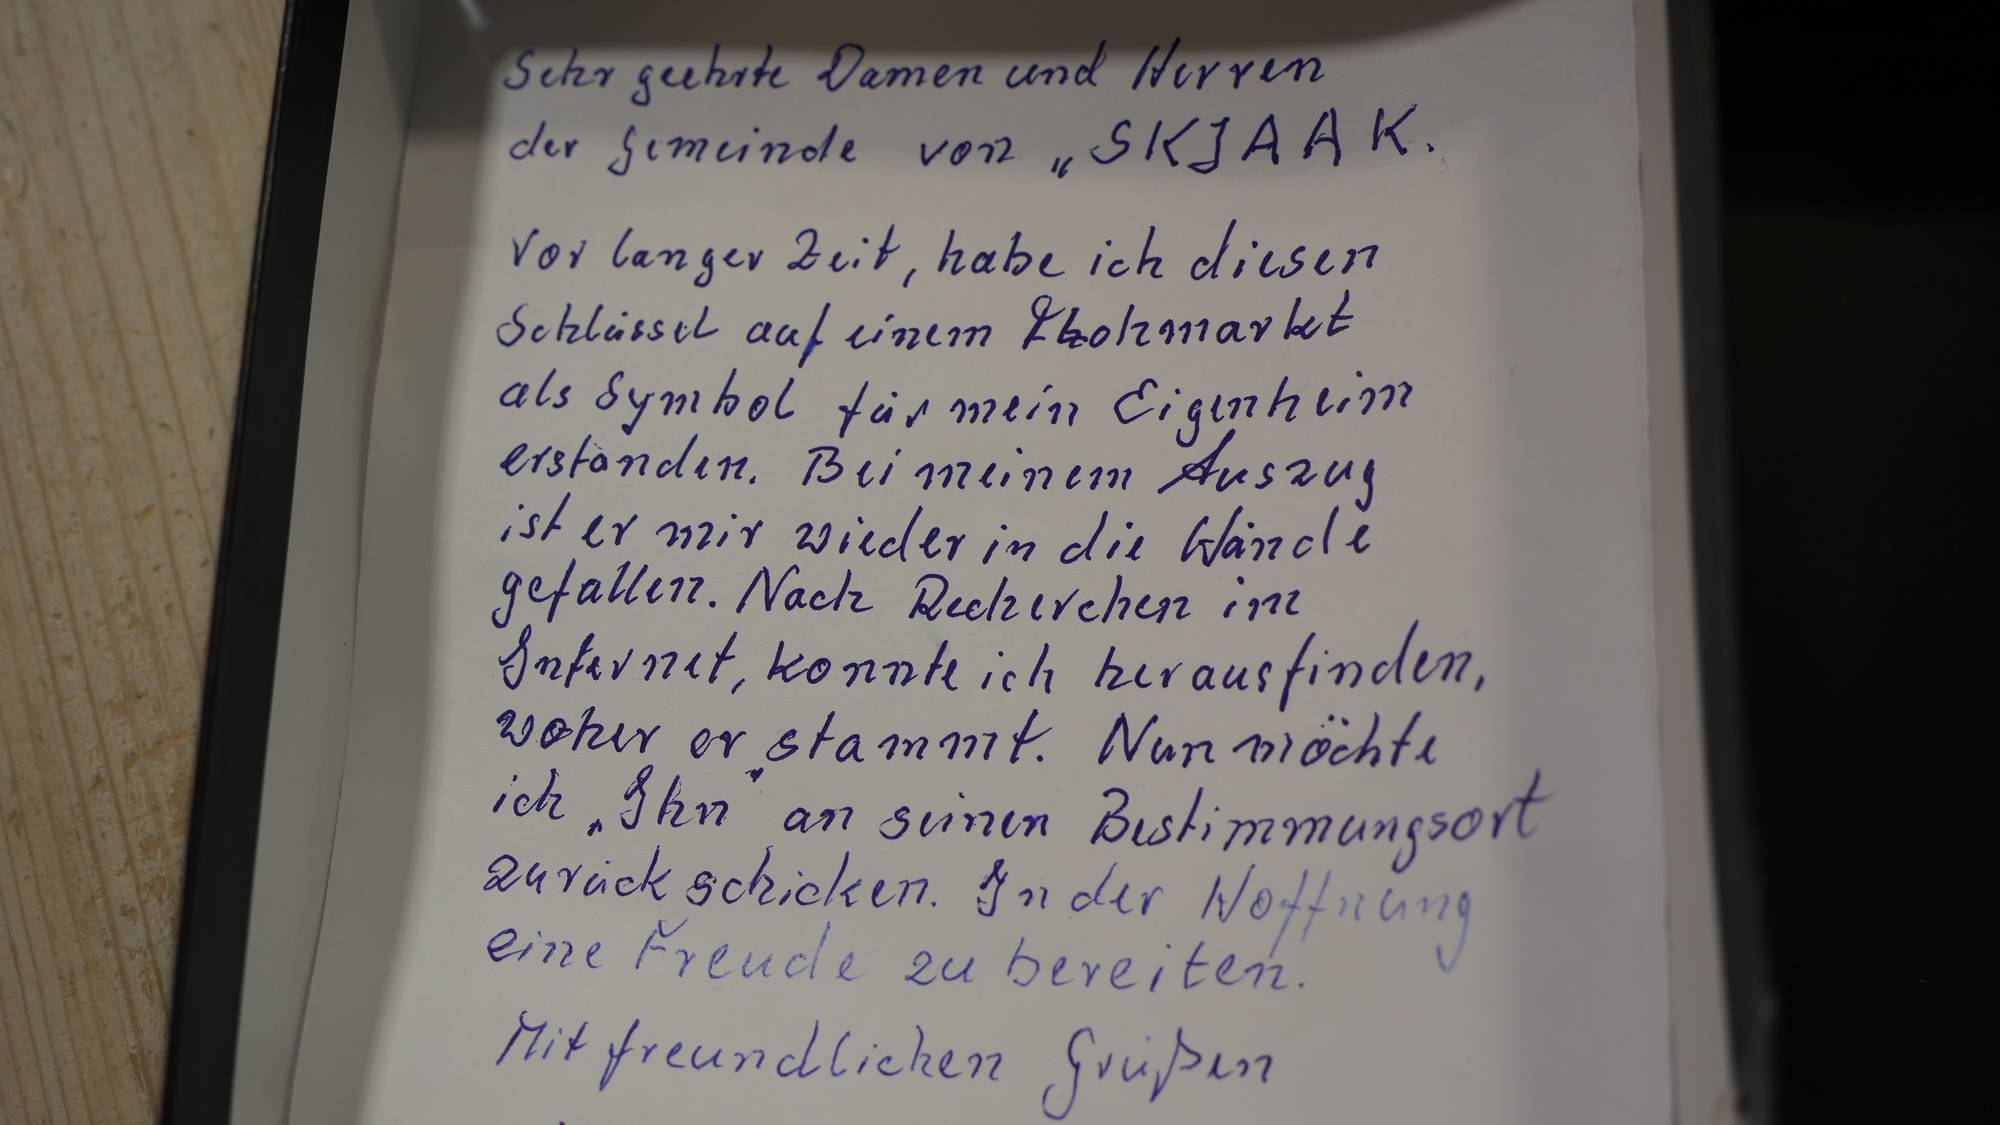 Sehr geehrte Damen und Herren
der Gemeinde von „SKJAAK.
Vor langer Zeit, habe ich diesen
Schlüssel auf einem
als Symbol für mein Eigenheim
erstanden. Bei meinem Auszug
ist er mir wieder in die Hände
gefallen. Nach Recherchen im
Internet, konnte ich herausfinden,
woher er stammt. Nun möchte
ich „Ihn" an seinen Bestimmungsort
zurück schicken. In der Hoffnung
eine Freude zu bereiten.
Mit freundlichen Grüßen